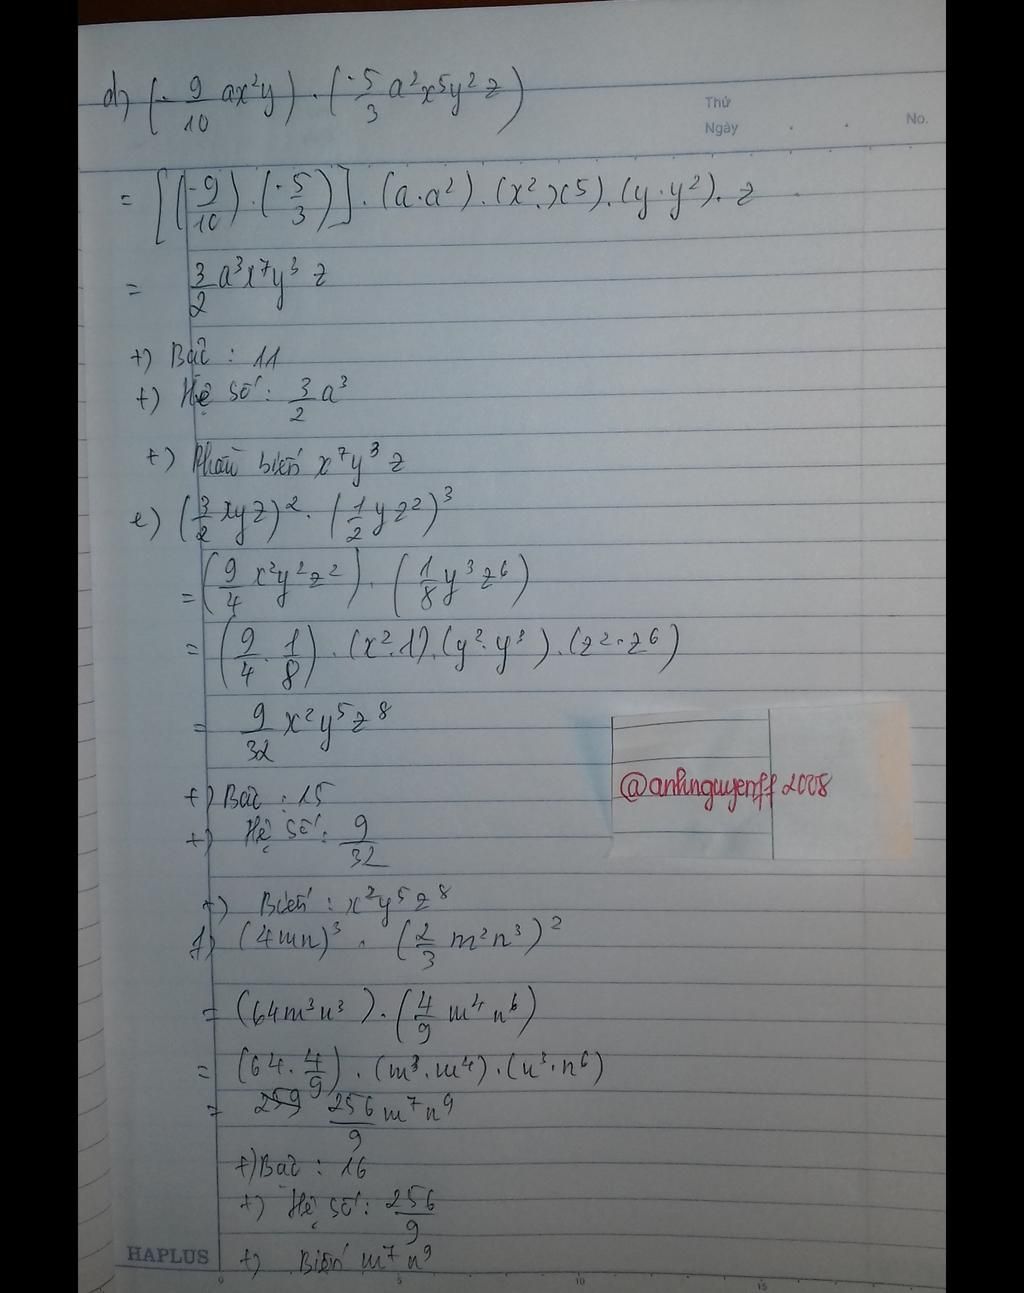 d) (-9/10 ax²y) . (-5/3 a²x⁵y²z)
Thứ
Ngày . .
No.
= [(-9/10) . (-5/3)] . (a.a²) . (x².x⁵) . (y.y²) . z
= 3/2 a³x⁷y³ z
+) Bậc : 11
+) Hệ số : 3/2 a³
+) Phần biến x⁷y³ z
e) (3/2 xyz)² . (1/2 yz²)³
= (9/4 x²y²z²) . (1/8 y³z⁶)
= (9/4 . 1/8) . (x².1) . (y².y³) . (z².z⁶)
= 9/32 x²y⁵z⁸
@anhnguyenff2008
+) Bậc : 15
+) Hệ số : 9/32
+) Biến : x²y⁵z⁸
f) (4mn)³ . (2/3 m²n³)²
= (64m³n³) . (4/9 m⁴n⁶)
= (64 . 4/9) . (m³.m⁴) . (n³.n⁶)
= 259 256/9 m⁷n⁹
+) Bậc : 16
+) Hệ số : 256/9
HAPLUS +) Biến m⁷n⁹
0 5 10 15